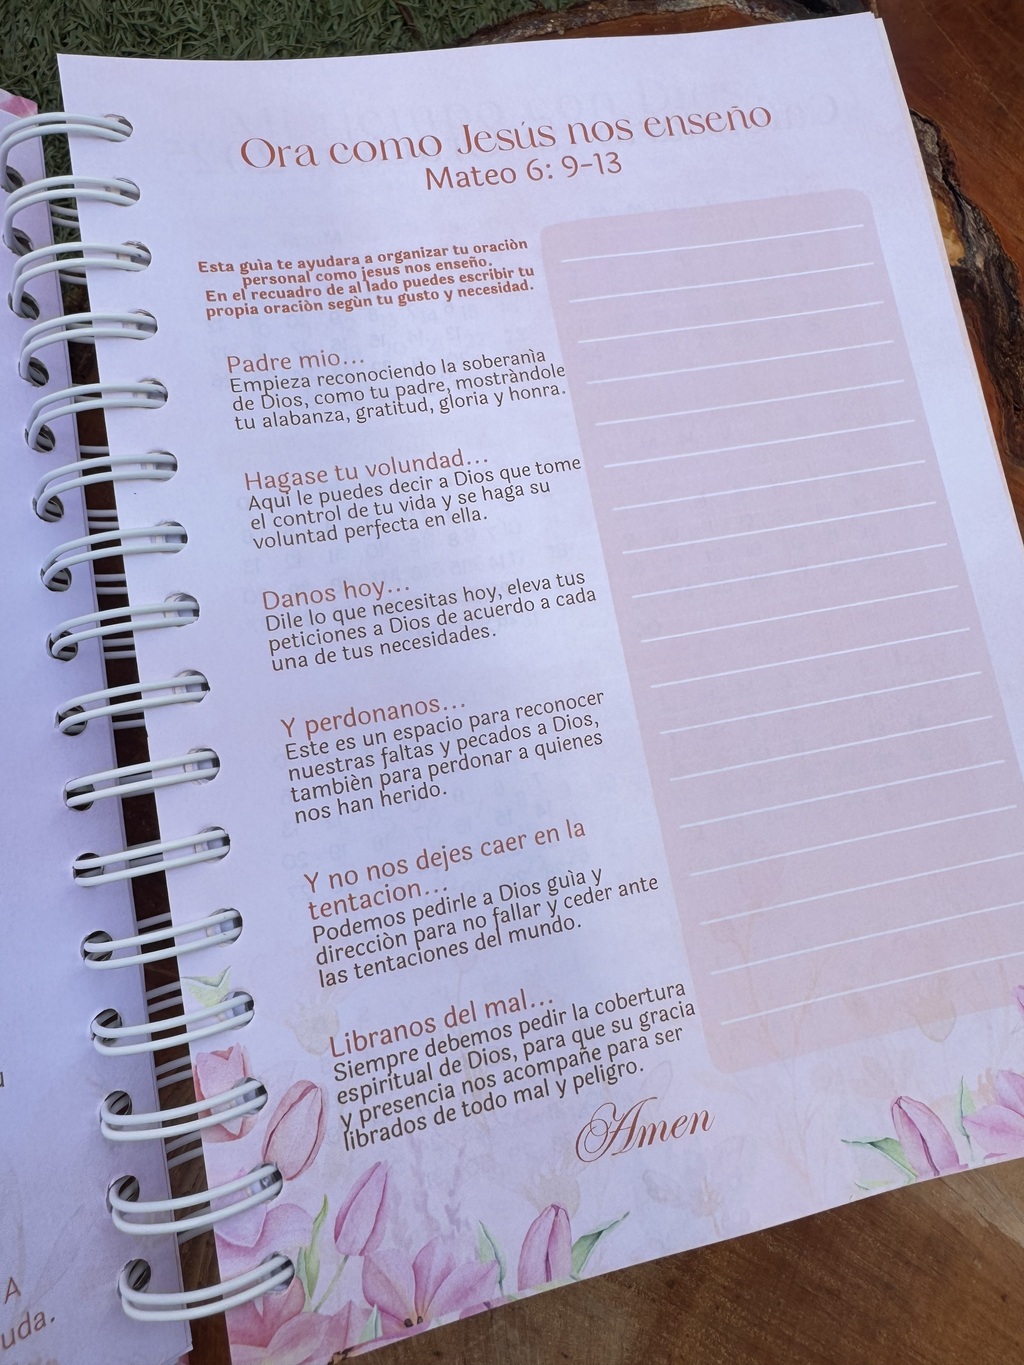 Ora como Jesús nos enseño
Mateo 6: 9-13
Esta guìa te ayudara a organizar tu oraciòn
personal como jesus nos enseño.
En el recuadro de al lado puedes escribir tu
propia oraciòn segùn tu gusto y necesidad.
Padre mio...
Empieza reconociendo la soberanìa
de Dios, como tu padre, mostràndole
tu alabanza, gratitud, gloria y honra.
Hagase tu volundad...
Aquì le puedes decir a Dios que tome
el control de tu vida y se haga su
voluntad perfecta en ella.
Danos hoy...
Dile lo que necesitas hoy, eleva tus
peticiones a Dios de acuerdo a cada
una de tus necesidades.
Y perdonanos...
Este es un espacio para reconocer
nuestras faltas y pecados a Dios,
tambièn para perdonar a quienes
nos han herido.
Y no nos dejes caer en la
tentacion...
Podemos pedirle a Dios guìa y
direcciòn para no fallar y ceder ante
las tentaciones del mundo.
Libranos del mal...
Siempre debemos pedir la cobertura
espiritual de Dios, para que su gracia
y presencia nos acompañe para ser
librados de todo mal y peligro.
Amen
A
uda.